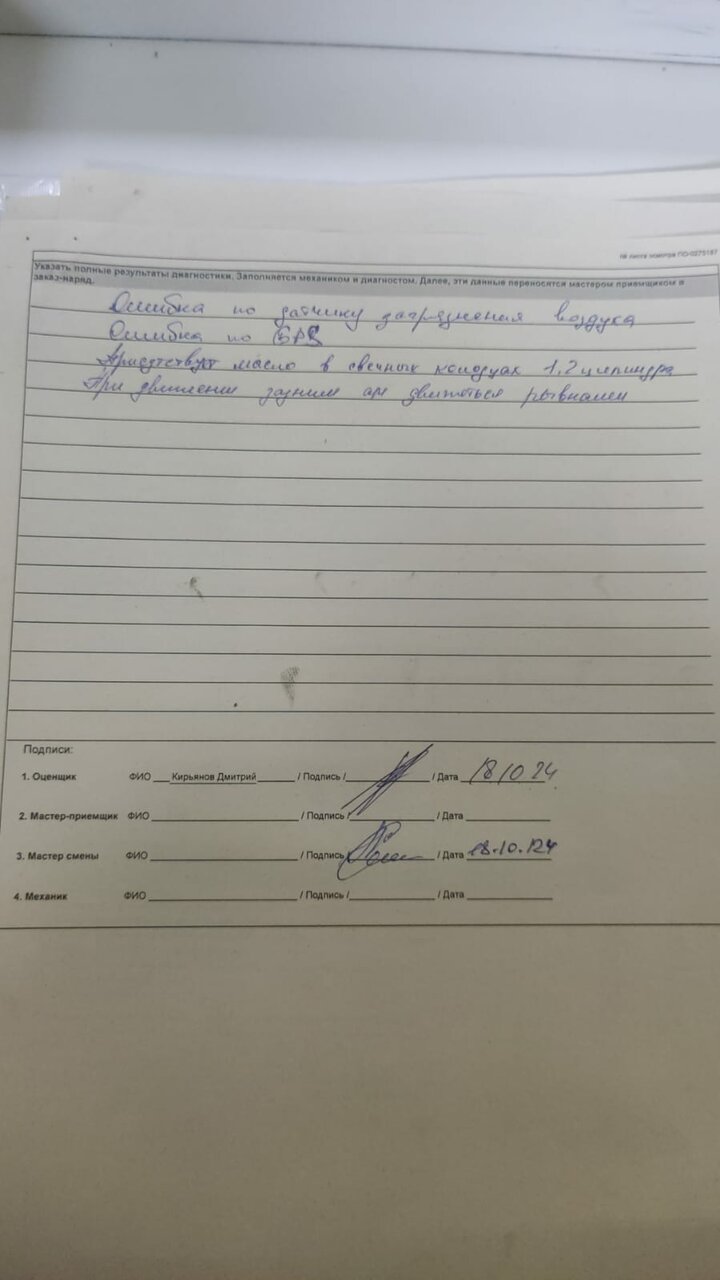 № листа осмотра ПО-0275187
Указать полные результаты диагностики. Заполняется механиком и диагностом. Далее, эти данные переносятся мастером приемщиком в
заказ-наряд.
Ошибка по датчику загрязнения воздуха
Ошибка по
Присутствует масло в свечных колодцах 1,2 цилиндра
При движении задним а/м движеться рывками
Подписи:
1. Оценщик ФИО Кирьянов Дмитрий / Подпись / / Дата 18 10 24
2. Мастер-приемщик ФИО / Подпись / / Дата
3. Мастер смены ФИО / Подпись / / Дата 18.10.24
4. Механик ФИО / Подпись / / Дата